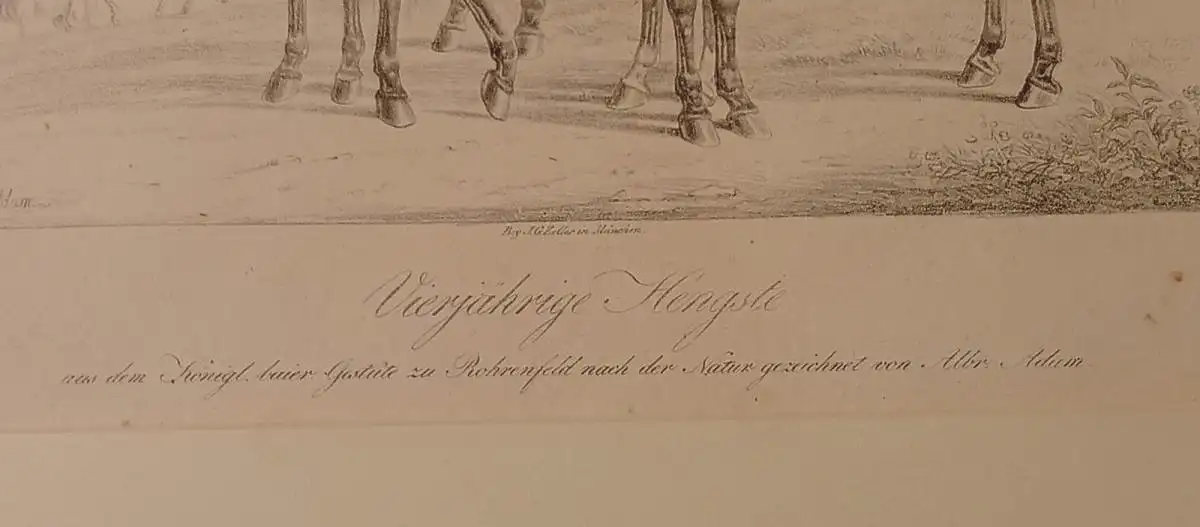 Adam
Bey J.G. Zeller in München.
Vierjährige Hengste
aus dem Königl. baier. Gestüte zu Rohrenfeld nach der Natur gezeichnet von Albr. Adam.